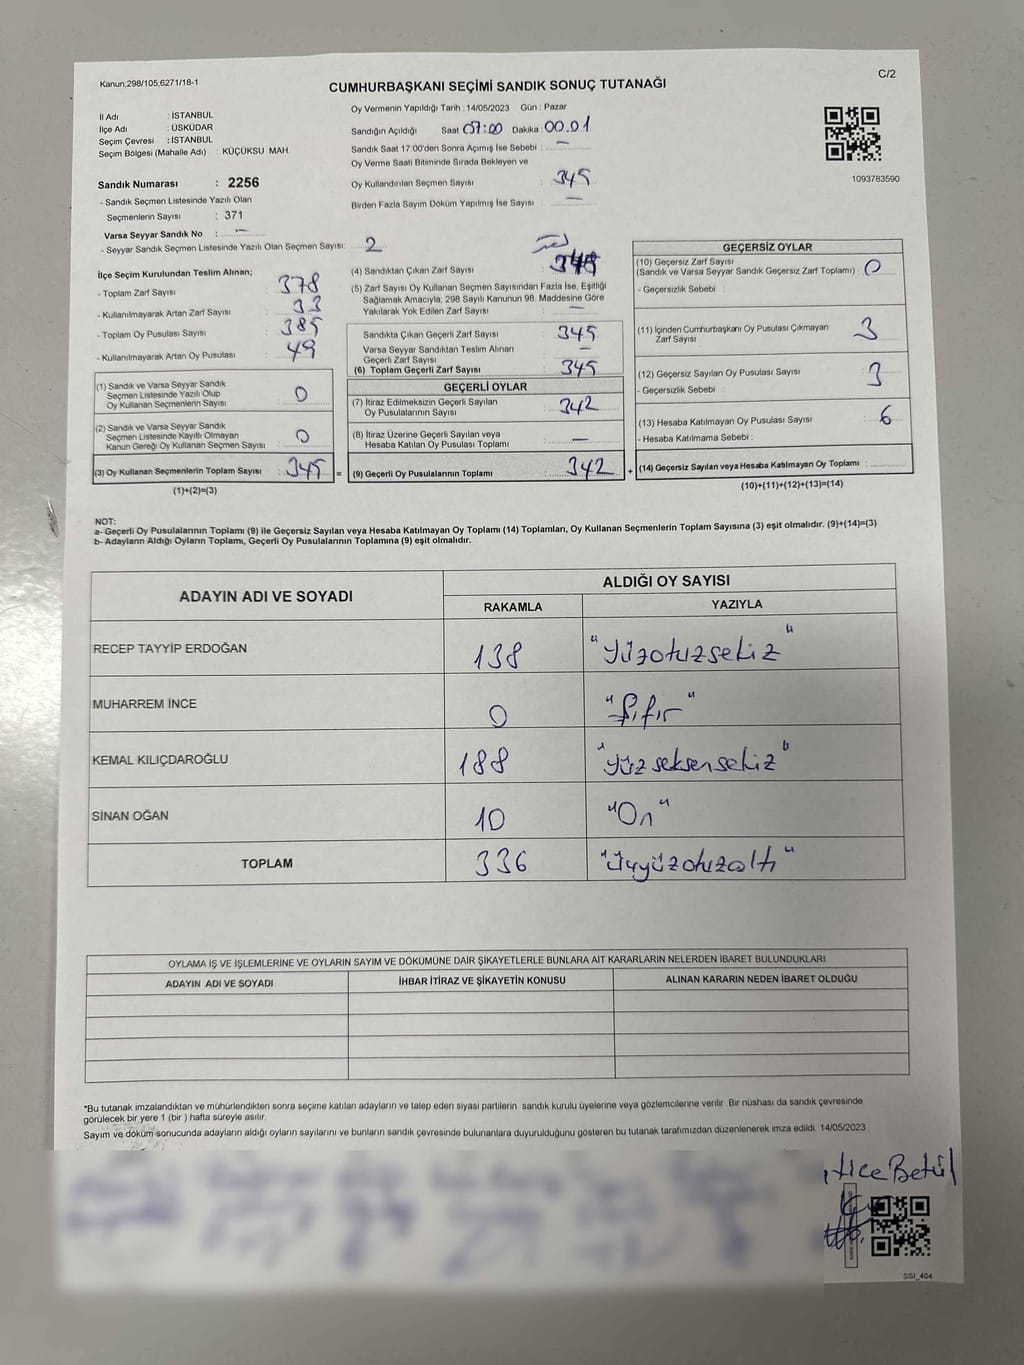 Kanun;298/105,6271/18-1
C/2
CUMHURBAŞKANI SEÇİMİ SANDIK SONUÇ TUTANAĞI
İl Adı : İSTANBUL
İlçe Adı : ÜSKÜDAR
Seçim Çevresi : İSTANBUL
Seçim Bölgesi (Mahalle Adı) : KÜÇÜKSU MAH.
Sandık Numarası : 2256
- Sandık Seçmen Listesinde Yazılı Olan
Seçmenlerin Sayısı : 371
Varsa Seyyar Sandık No : —
- Seyyar Sandık Seçmen Listesinde Yazılı Olan Seçmen Sayısı: 2
Oy Vermenin Yapıldığı Tarih : 14/05/2023 Gün : Pazar
Sandığın Açıldığı Saat 07:00 Dakika : 00.01
Sandık Saat 17.00'den Sonra Açımış İse Sebebi : —
Oy Verme Saati Bitiminde Sırada Bekleyen ve
Oy Kullandırılan Seçmen Sayısı : 345
Birden Fazla Sayım Döküm Yapılmış İse Sayısı : —
1093783590
İlçe Seçim Kurulundan Teslim Alınan;
- Toplam Zarf Sayısı : 378
- Kullanılmayarak Artan Zarf Sayısı : 33
- Toplam Oy Pusulası Sayısı : 385
- Kullanılmayarak Artan Oy Pusulası : 49
(1) Sandık ve Varsa Seyyar Sandık
Seçmen Listesinde Yazılı Olup
Oy Kullanan Seçmenlerin Sayısı : 0
(2) Sandık ve Varsa Seyyar Sandık
Seçmen Listesinde Kayıtlı Olmayan
Kanun Gereği Oy Kullanan Seçmen Sayısı : 0
(3) Oy Kullanan Seçmenlerin Toplam Sayısı : 345 =
(1)+(2)=(3)
(4) Sandıktan Çıkan Zarf Sayısı : 345
(5) Zarf Sayısı Oy Kullanan Seçmen Sayısından Fazla İse, Eşitliği
Sağlamak Amacıyla, 298 Sayılı Kanunun 98. Maddesine Göre
Yakılarak Yok Edilen Zarf Sayısı : —
Sandıkta Çıkan Geçerli Zarf Sayısı : 345
Varsa Seyyar Sandıktan Teslim Alınan : —
Geçerli Zarf Sayısı
(6) Toplam Geçerli Zarf Sayısı : 345
GEÇERLİ OYLAR
(7) İtiraz Edilmeksizin Geçerli Sayılan
Oy Pusulalarının Sayısı : 342
(8) İtiraz Üzerine Geçerli Sayılan veya
Hesaba Katılan Oy Pusulası Toplamı : —
(9) Geçerli Oy Pusulalarının Toplamı : 342 +
GEÇERSİZ OYLAR
(10) Geçersiz Zarf Sayısı
(Sandık ve Varsa Seyyar Sandık Geçersiz Zarf Toplamı) : 0
- Geçersizlik Sebebi :
(11) İçinden Cumhurbaşkanı Oy Pusulası Çıkmayan
Zarf Sayısı : 3
(12) Geçersiz Sayılan Oy Pusulası Sayısı : 3
- Geçersizlik Sebebi :
(13) Hesaba Katılmayan Oy Pusulası Sayısı : 6
- Hesaba Katılmama Sebebi :
(14) Geçersiz Sayılan veya Hesaba Katılmayan Oy Toplamı :
(10)+(11)+(12)+(13)=(14)
NOT:
a- Geçerli Oy Pusulalarının Toplamı (9) ile Geçersiz Sayılan veya Hesaba Katılmayan Oy Toplamı (14) Toplamları, Oy Kullanan Seçmenlerin Toplam Sayısına (3) eşit olmalıdır. (9)+(14)=(3)
b- Adayların Aldığı Oyların Toplamı, Geçerli Oy Pusulalarının Toplamına (9) eşit olmalıdır.
ADAYIN ADI VE SOYADI
ALDIĞI OY SAYISI
RAKAMLA YAZIYLA
RECEP TAYYİP ERDOĞAN 138 "Yüzotuzsekiz"
MUHARREM İNCE 0 "Sıfır"
KEMAL KILIÇDAROĞLU 188 "Yüzseksensekiz"
SİNAN OĞAN 10 "On"
TOPLAM 336 "Üçyüzotuzaltı"
OYLAMA İŞ VE İŞLEMLERİNE VE OYLARIN SAYIM VE DÖKÜMÜNE DAİR ŞİKAYETLERLE BUNLARA AİT KARARLARIN NELERDEN İBARET BULUNDUKLARI
ADAYIN ADI VE SOYADI İHBAR İTİRAZ VE ŞİKAYETİN KONUSU ALINAN KARARIN NEDEN İBARET OLDUĞU
*Bu tutanak imzalandıktan ve mühürlendikten sonra seçime katılan adayların ve talep eden siyasi partilerin sandık kurulu üyelerine veya gözlemcilerine verilir. Bir nüshası da sandık çevresinde
görülecek bir yere 1 (bir ) hafta süreyle asılır.
Sayım ve döküm sonucunda adayların aldığı oyların sayılarını ve bunların sandık çevresinde bulunanlara duyurulduğunu gösteren bu tutanak tarafımızdan düzenlenerek imza edildi. 14/05/2023
Betül
SSI_404